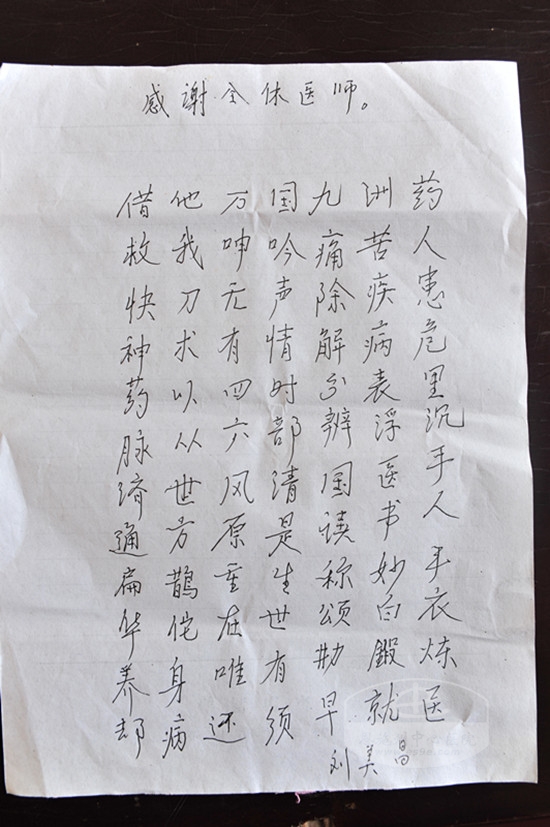 感谢全体医师。
借他万国九洲药
救我呻吟痛苦人
快刀无声除疾患
神术有情解病危
药以四时分表里
脉从六部辨浮沉
济世风清国医手
通方原是读书人
扁鹊重生称妙手
华佗在世颂白衣
养身唯有勤锻炼
却病还须早就医
刘美昌